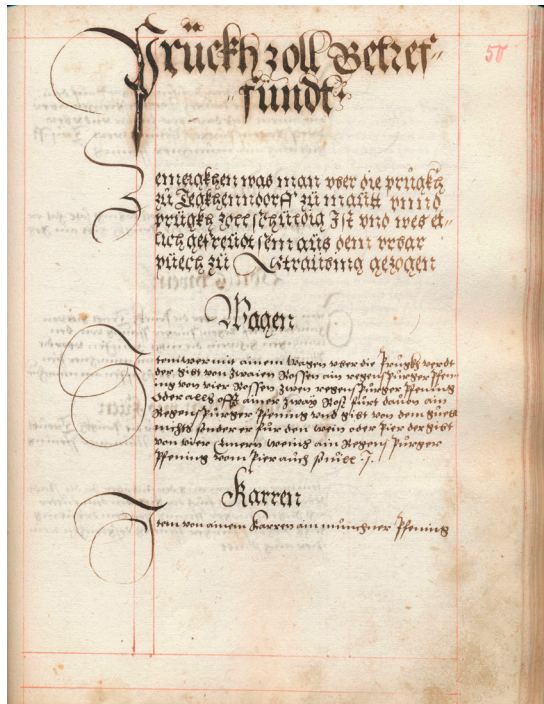 Prückh zoll Betref=
fundt.
50
Zemerckhen was man vber die prügkh
zu Tegkhenndorff zu mautt vnnd
prügkh zoll schuldig Ist vnd wes et=
lich gefreudt sein aus dem vrbar
puech zu Straubing gezogen
Wagen
Item wer mit ainem wagen vber die Prugkh verdt
der gibt von zwaien Rossen ain regenspurger pfen
ing von vier Rossen zwen regenspurger pfening
Oder alls offt ainer zway Roß fürt dauon ain
Regenspurger pfening vnd gibt von dem guet
nichts sonder er für den wein oder Pier der gibt
von vier Emern weins ain Regenspurger
pfening vom Pier auch souill .J.
Karren
Item von ainem Karren ain münchner pfening